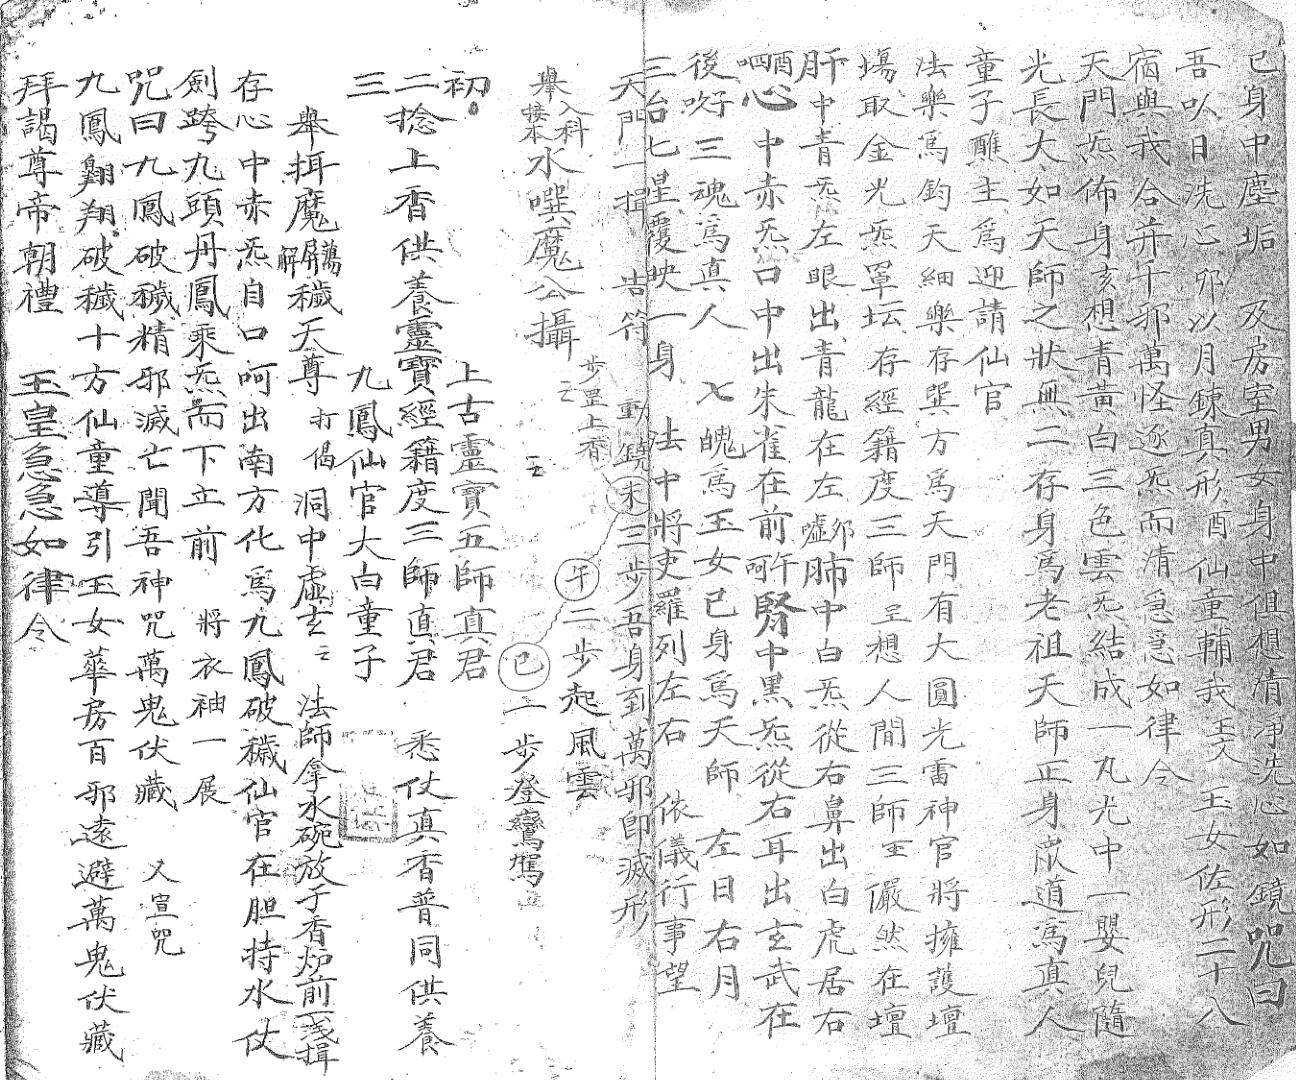 己身中塵垢 及房室男女身中俱想清净洗心如鏡咒曰
吾以日洗心卯以月鍊真形酉仙童輔我玉女佐形二十八
宿與我合并千邪萬怪逐炁而清急急如律令
天門炁佈身亥想青黃白三色雲炁結成一九光中一嬰兒隨
光長大如天師之狀無二存身爲老祖天師正身眾道爲真人
童子醮主爲迎請仙官
法樂爲鈞天細樂存巽方爲天門有大圓光雷神官將擁護壇
塲取金光炁罩坛存經籍度三師呈想人間三師 儼然在壇
肝中青炁左眼出青龍在左噓卯肺中白炁從右鼻出白虎居右
呬酉心中赤炁口中出朱雀在前呵午腎中黑炁從右耳出玄武在
後吹子三魂爲真人 七魄爲玉女己身爲天師 左日右月
三台七星覆映一身 法中將吏羅列左右 依儀行事望
天門一揖 告符 動鐃未三步吾身到萬邪即滅形
步罡上香云 午二步起風雲
舉入科接本水噀魔公攝 云 已一步登鸞駕
初 上古靈寶五師真君
二捻上香供養靈寶經籍度三師真君 悉仗真香普同供養
三 九鳳仙官大白童子
舉揖魔解穢天尊 打偈 洞中虛玄云 法師拿水碗放于香炉前一揖
存心中赤炁自口呵出南方化爲九鳳破穢仙官在胆持水仗
劍跨九頭丹鳳乘炁而下立前 將衣袖一展
咒曰九鳳破穢精邪滅亡聞吾神咒萬鬼伏藏 又宣咒
九鳳翱翔破穢十方仙童導引玉女華房百邪遠避萬鬼伏藏
拜謁尊帝朝禮 玉皇急急如律令